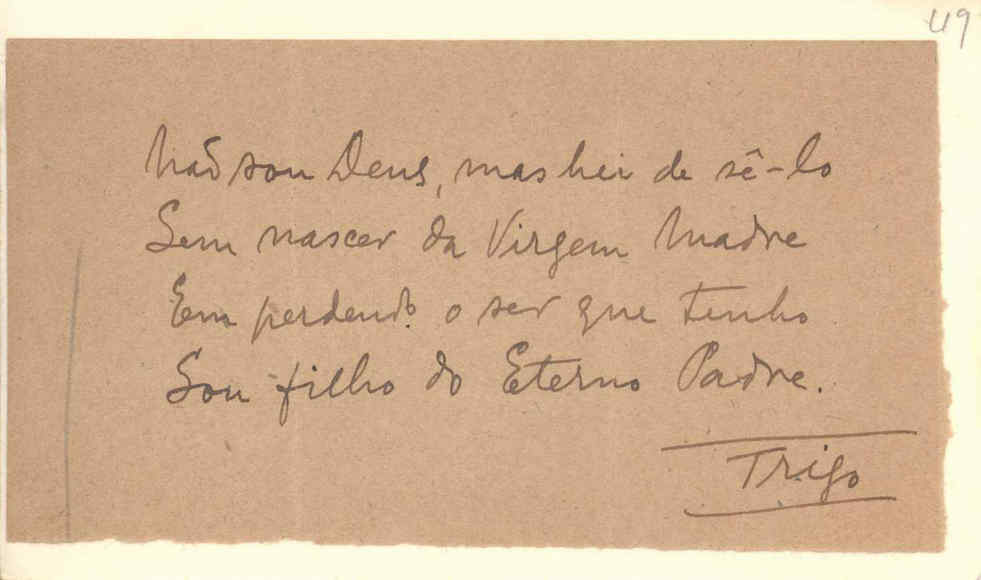 49
Não sou Deus, mas hei de sê-lo
Sem nascer da Virgem Madre
Em perdendo o ser que tenho
Sou filho do Eterno Padre.
Trigo